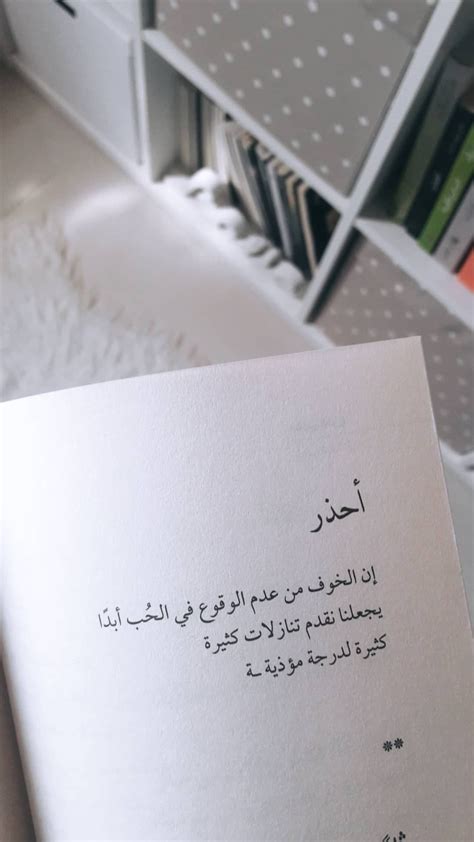 أحذر
إن الخوف من عدم الوقوع في الحُب أبدًا
يجعلنا نقدم تنازلات كثيرة
كثيرة لدرجة مؤذية ـة
**